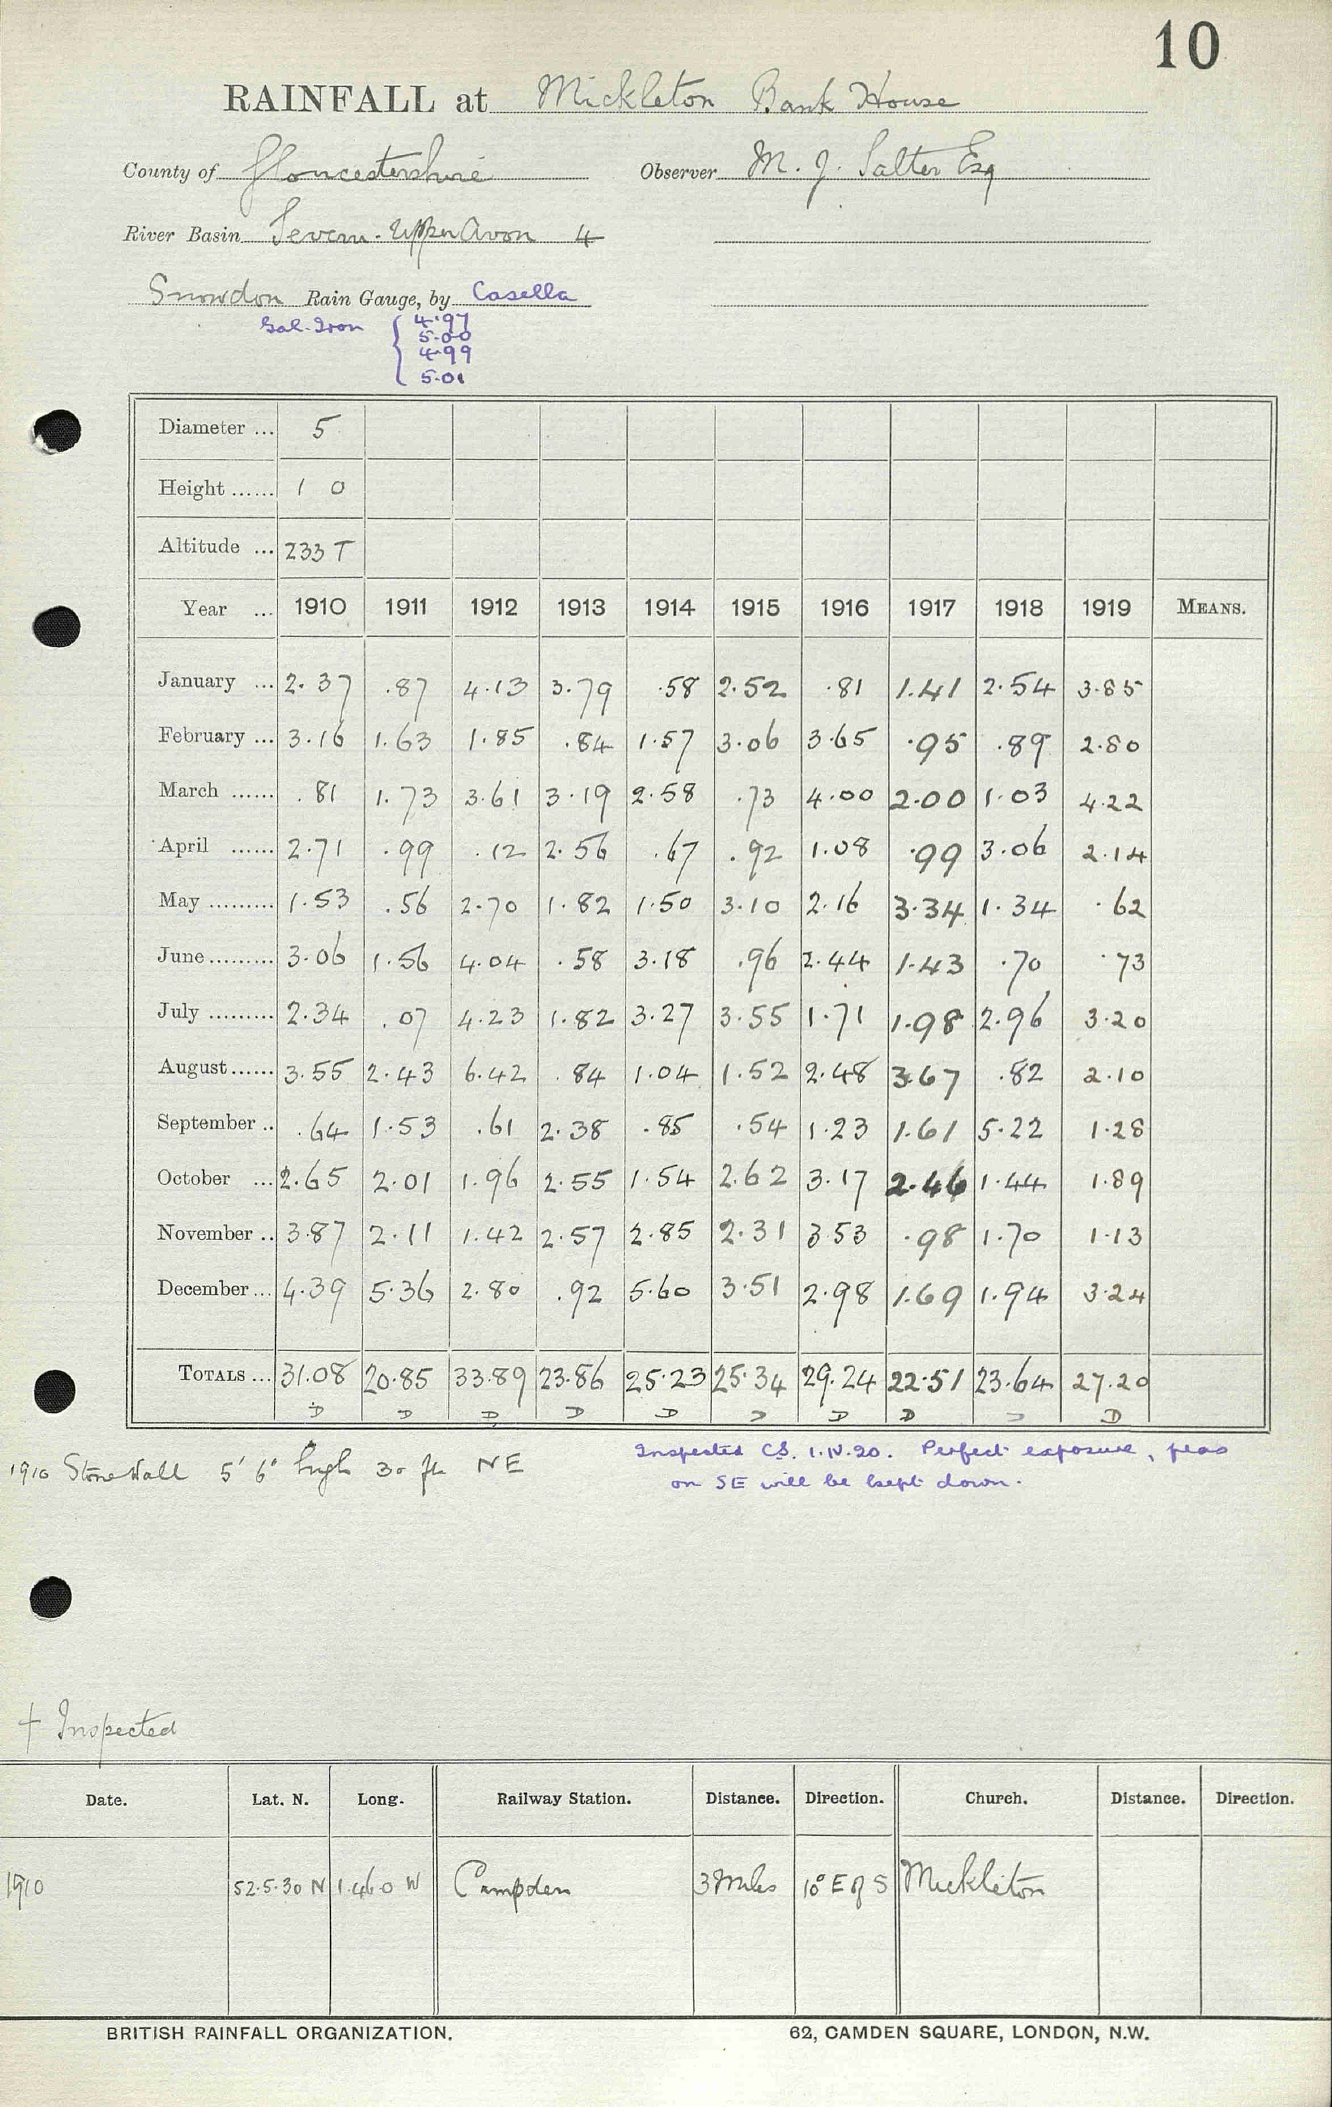 10
RAINFALL at Mickleton Bank House
County of Gloucestershire Observer M. J. Salter Esq
River Basin Severn - Upper Avon 4
Snowdon Rain Gauge, by Casella
Gal. Iron { 4.97
5.00
4.99
5.01
Diameter ... 5
Height ...... 1 0
Altitude ... 233 T
Year ... 1910 1911 1912 1913 1914 1915 1916 1917 1918 1919 MEANS.
January ... 2.37 .87 4.13 3.79 .58 2.52 .81 1.41 2.54 3.85
February ... 3.16 1.63 1.85 .84 1.57 3.06 3.65 .95 .89 2.80
March ...... .81 1.73 3.61 3.19 2.58 .73 4.00 2.00 1.03 4.22
April ...... 2.71 .99 .12 2.56 .67 .92 1.08 .99 3.06 2.14
May ......... 1.53 .56 2.70 1.82 1.50 3.10 2.16 3.34 1.34 .62
June ......... 3.06 1.56 4.04 .58 3.18 .96 2.44 1.43 .70 .73
July ......... 2.34 .07 4.23 1.82 3.27 3.55 1.71 1.98 2.96 3.20
August ...... 3.55 2.43 6.42 .84 1.04 1.52 2.48 3.67 .82 2.10
September .. .64 1.53 .61 2.38 .85 .54 1.23 1.61 5.22 1.28
October ... 2.65 2.01 1.96 2.55 1.54 2.62 3.17 2.46 1.44 1.89
November .. 3.87 2.11 1.42 2.57 2.85 2.31 3.53 .98 1.70 1.13
December ... 4.39 5.36 2.80 .92 5.60 3.51 2.98 1.69 1.94 3.24
TOTALS ... 31.08 20.85 33.89 23.86 25.23 25.34 29.24 22.51 23.64 27.20
D D D D D D D D D D
1910 Stone Wall 5' 6" high 30 ft. NE
Inspected C.S. 1.IV.20. Perfect exposure, peas
on SE will be kept down.
† Inspected
Date. Lat. N. Long. Railway Station. Distance. Direction. Church. Distance. Direction.
1910 52.5.30 N 1.46.0 W Campden 3 Miles 10° E of S Mickleton
BRITISH RAINFALL ORGANIZATION. 62, CAMDEN SQUARE, LONDON, N.W.